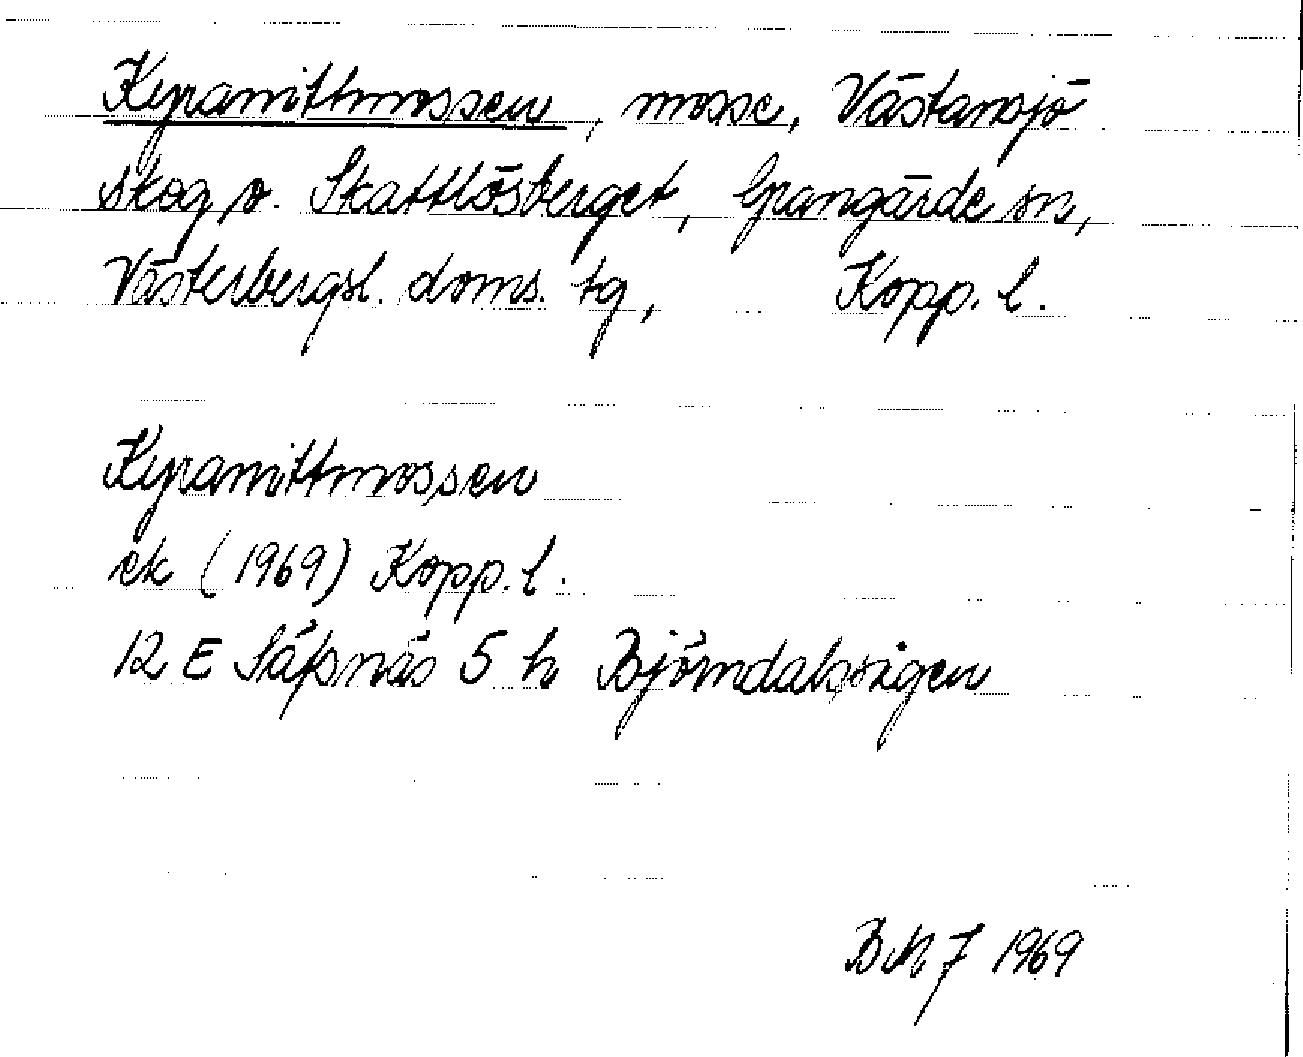 Kyramittmossen, mosse, Västansjö
skog v. Skattlösberget, Grangärde sn,
Västerbergsl. doms. tg, Kopp. l.
Kyramittmossen
ek (1969) Kopp. l.
12 E Säfsnäs 5 h Björndalssigen
BM7 1969